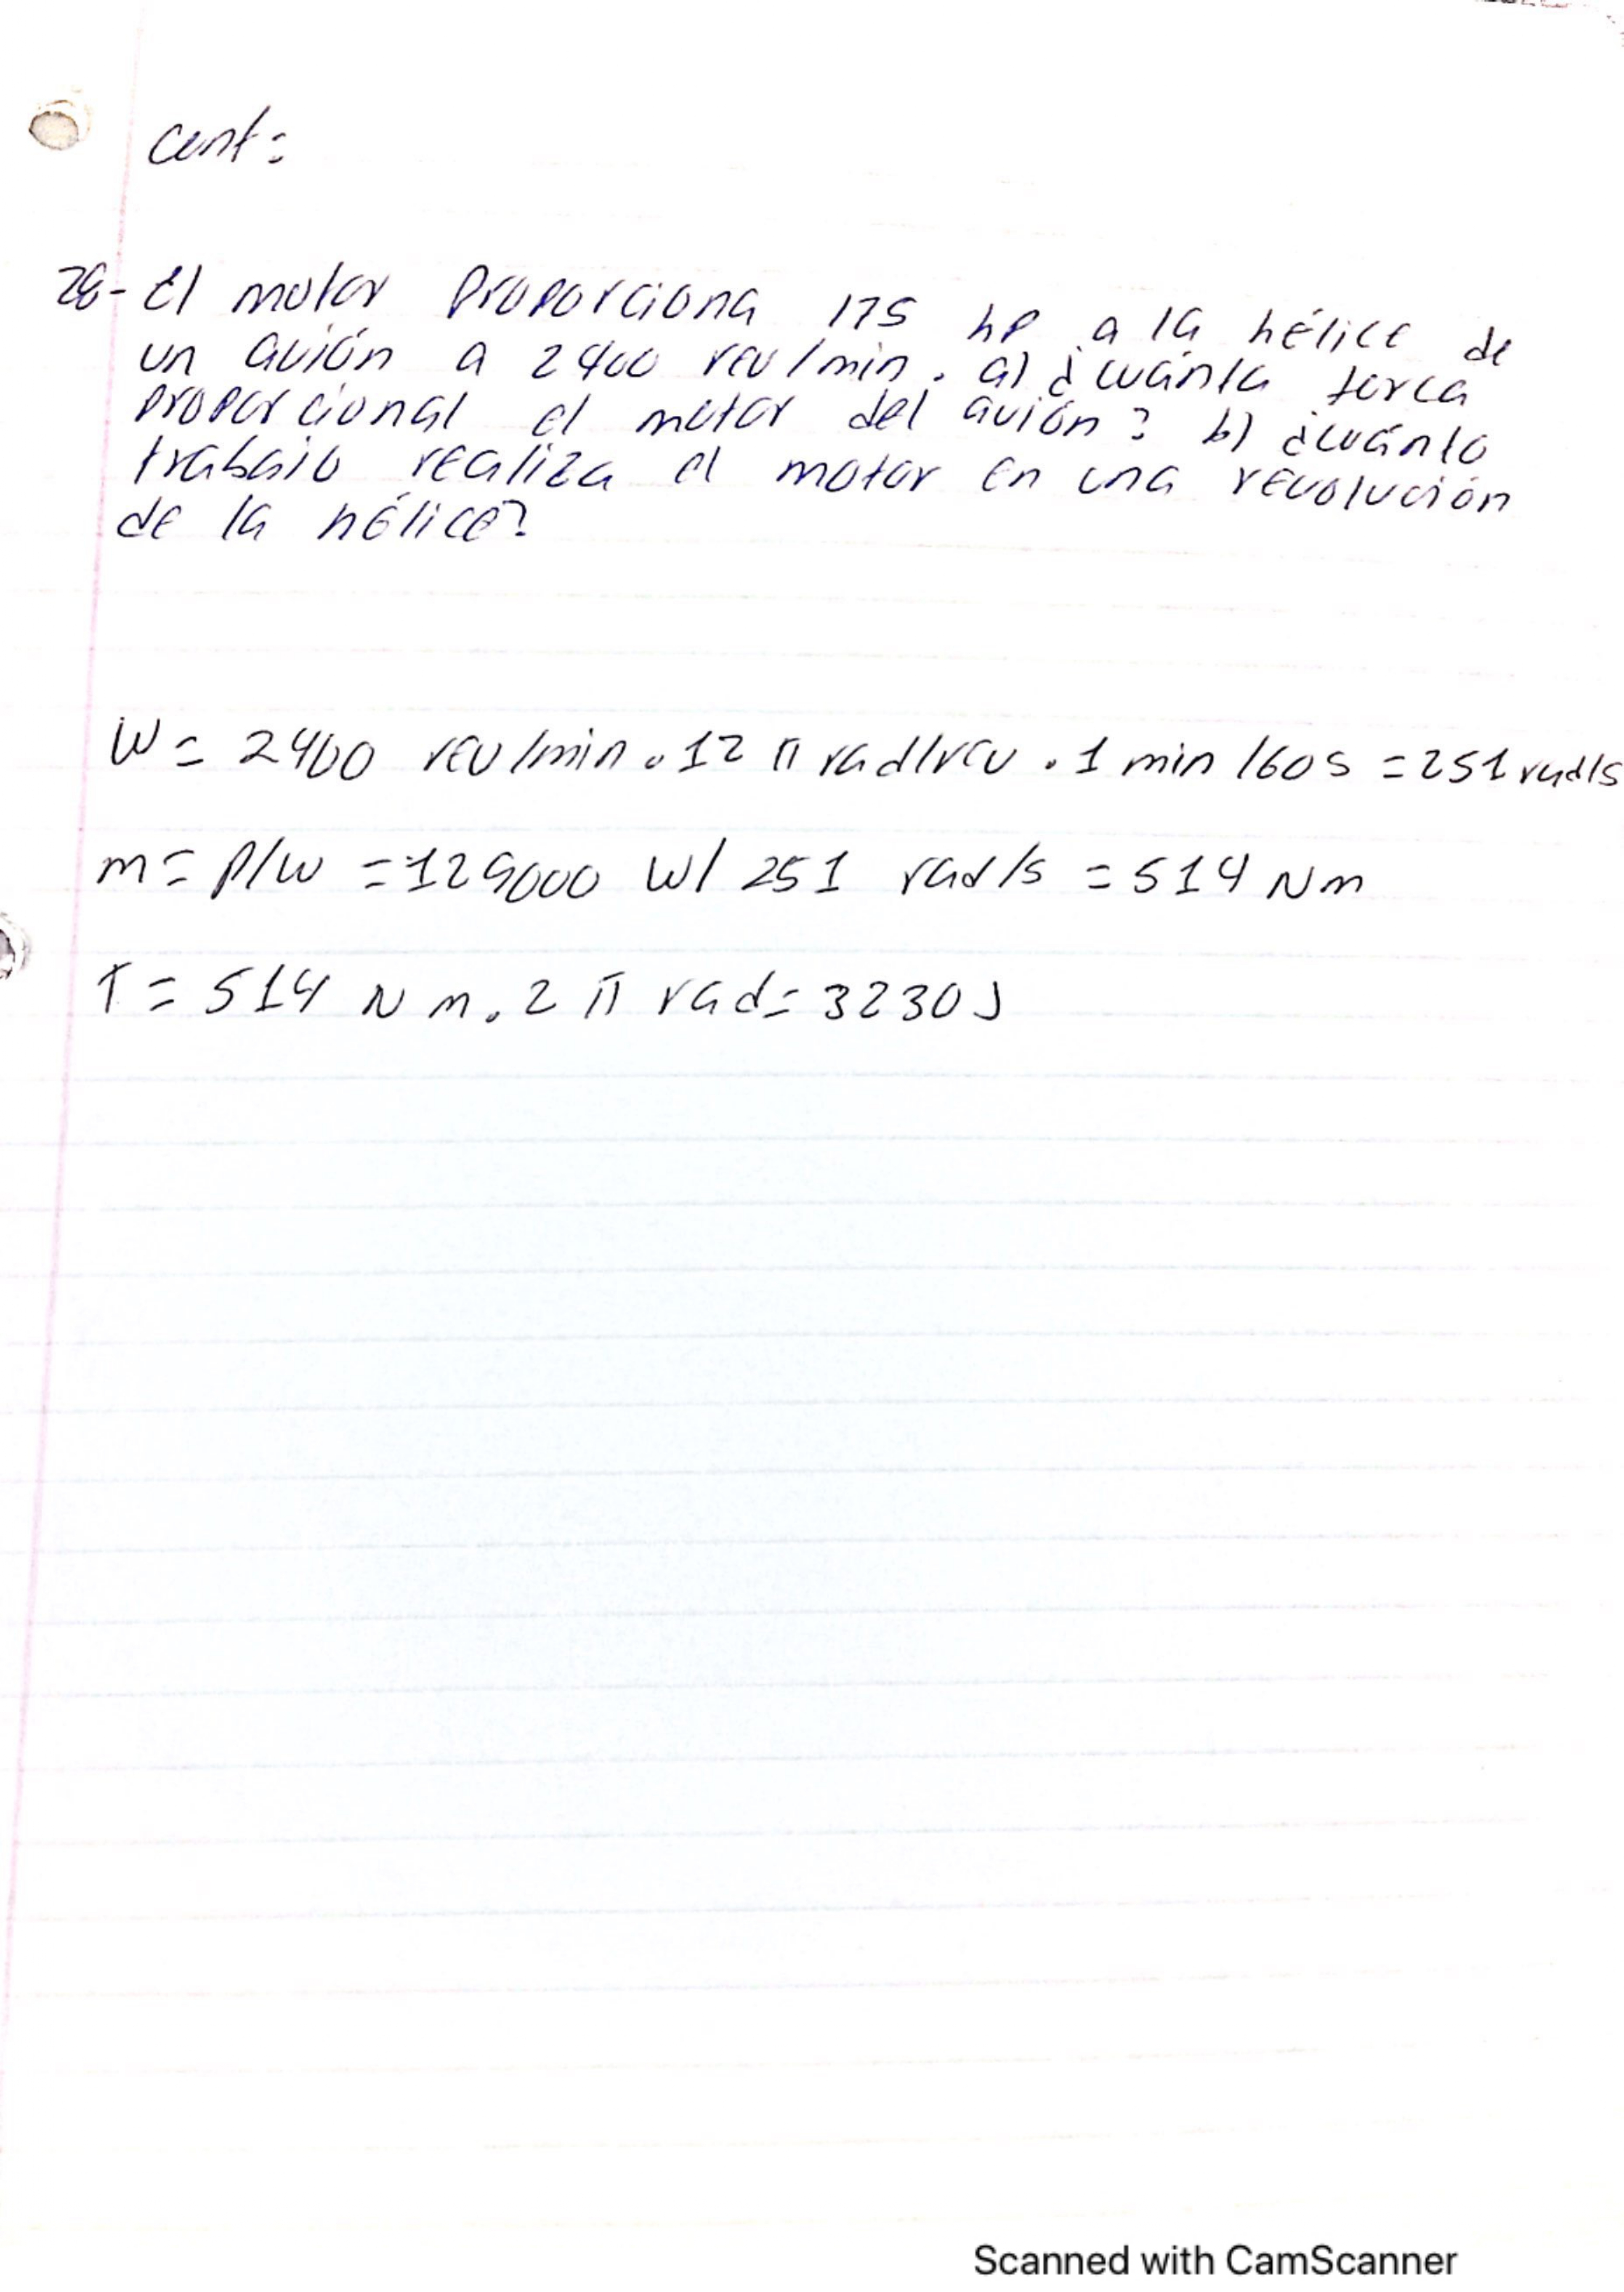 cont:
28- El motor proporciona 175 hp a la hélice de
un avión a 2400 rev/min. a) ¿cuánta torca
proporcional el motor del avión? b) ¿cuánto
trabajo realiza el motor en una revolución
de la hélice?
W = 2400 rev/min . 12 π rad/rev . 1 min /60 s = 251 rad/s
m = P/w = 129000 W/ 251 rad/s = 514 Nm
T = 514 N m . 2 π rad = 3230 J
Scanned with CamScanner